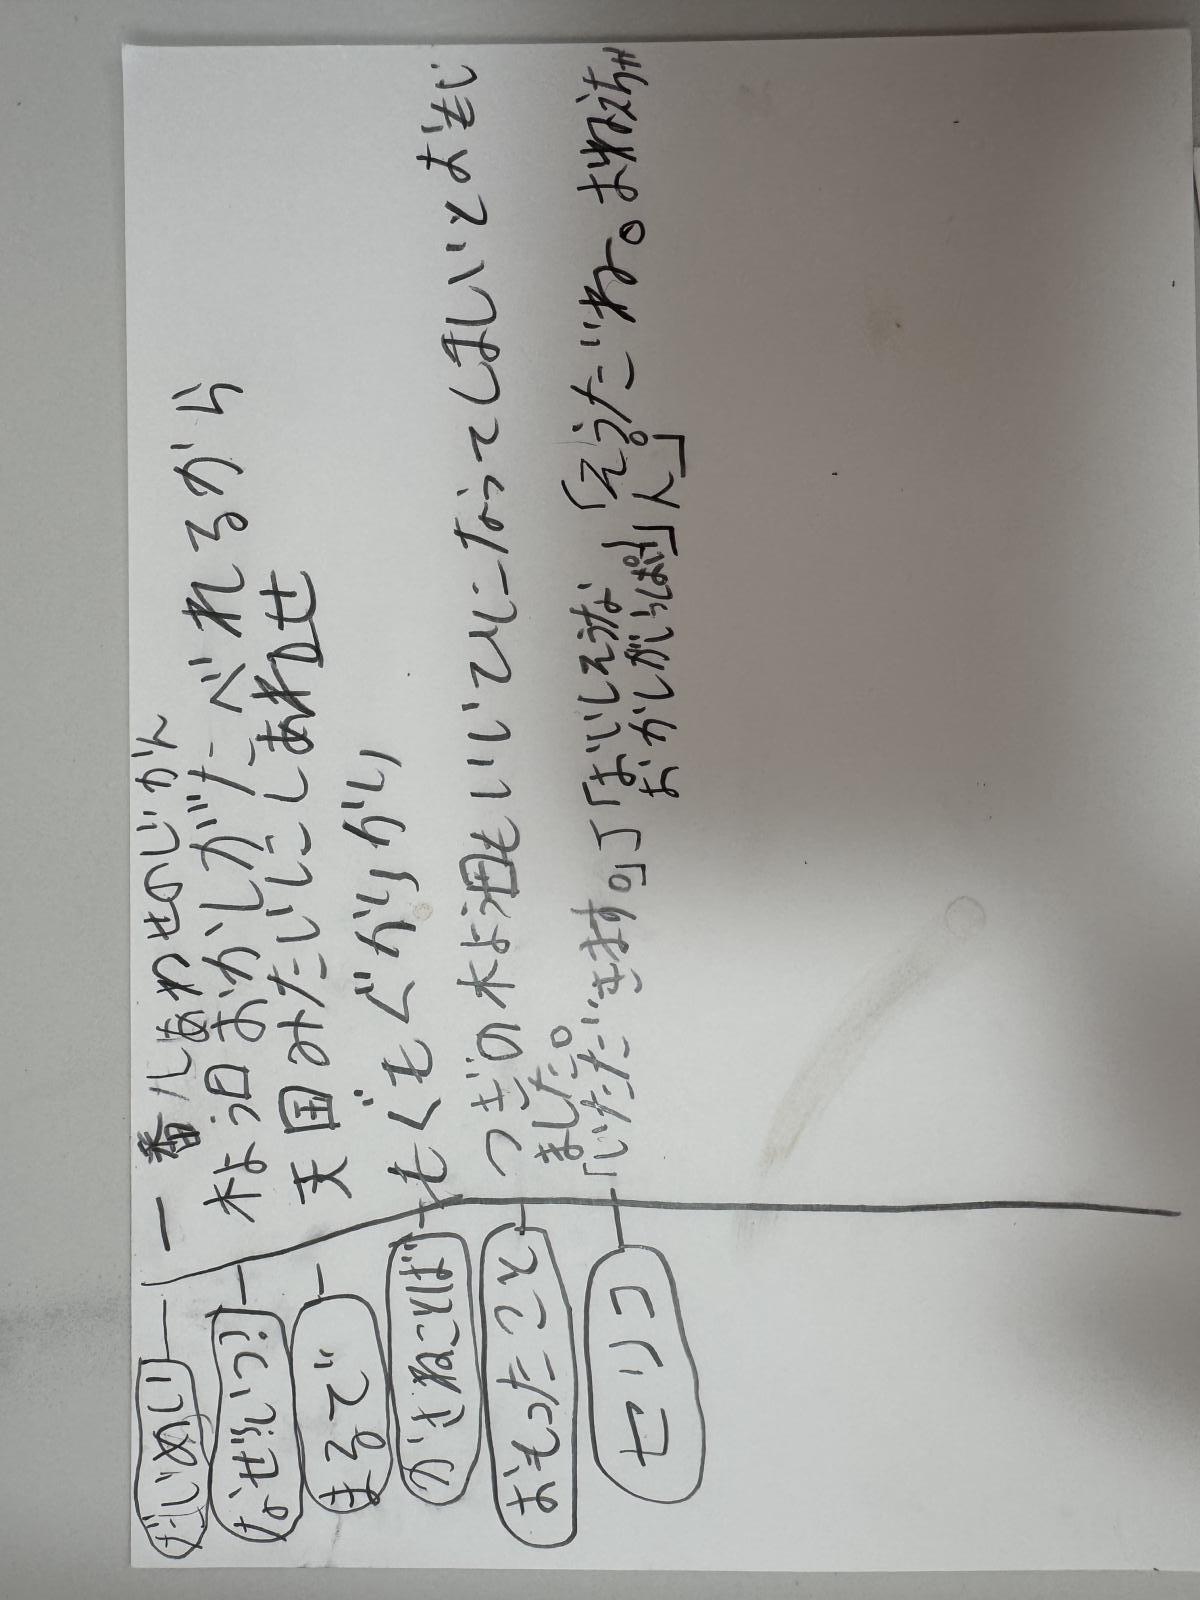 だいめい 一番しあわせのじかん
なぜ?いつ? 木よ日おかしがたべれるから
まるで 天国みたいにしあわせ
かさねことば もぐもぐがりがり
おもったこと つぎの木よ日もいいてひになってほしいとお
ました。
セリコ 「いただきます。」「おいしそうな
おかしがいっぱい」
「そうだね。おねえちゃ
ん」